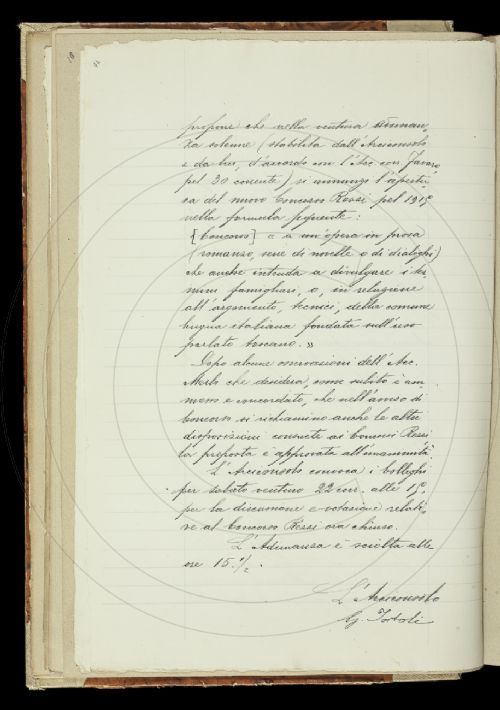 propone che nella ventura adunan-
za solenne (stabilita dall'Arciconsolo
e da lui, d'accordo con l'Acc. con.
pel 30 corrente) si annunzi l'apertu-
ra del nuovo Concorso Rossi pel 191
nella formula seguente:
[Concorso] a un'opera in prosa
(romanzo, serie di novelle o di dialoghi)
che anche intenda a divulgare i ter-
mini famigliari, o, in relazione
all'argomento, tecnici, della comune
lingua italiana fondata sull'uso
parlato toscano. »
Dopo alcune osservazioni dell'Acc.
che desidera, come subito è am-
messo e concordato, che nell'avviso di
concorso si richiamino anche le altre
disposizioni concrete ai Concorsi Rossi,
la proposta è approvata all'unanimità.
L'Arciconsolo convoca i Colleghi
per sabato venturo 22 corr. alle 15,
per la discussione e votazione relati-
ve al Concorso Rossi ora chiuso.
L'Adunanza è sciolta alle
ore 15 ½.
L'Arciconsolo
G. Tortoli